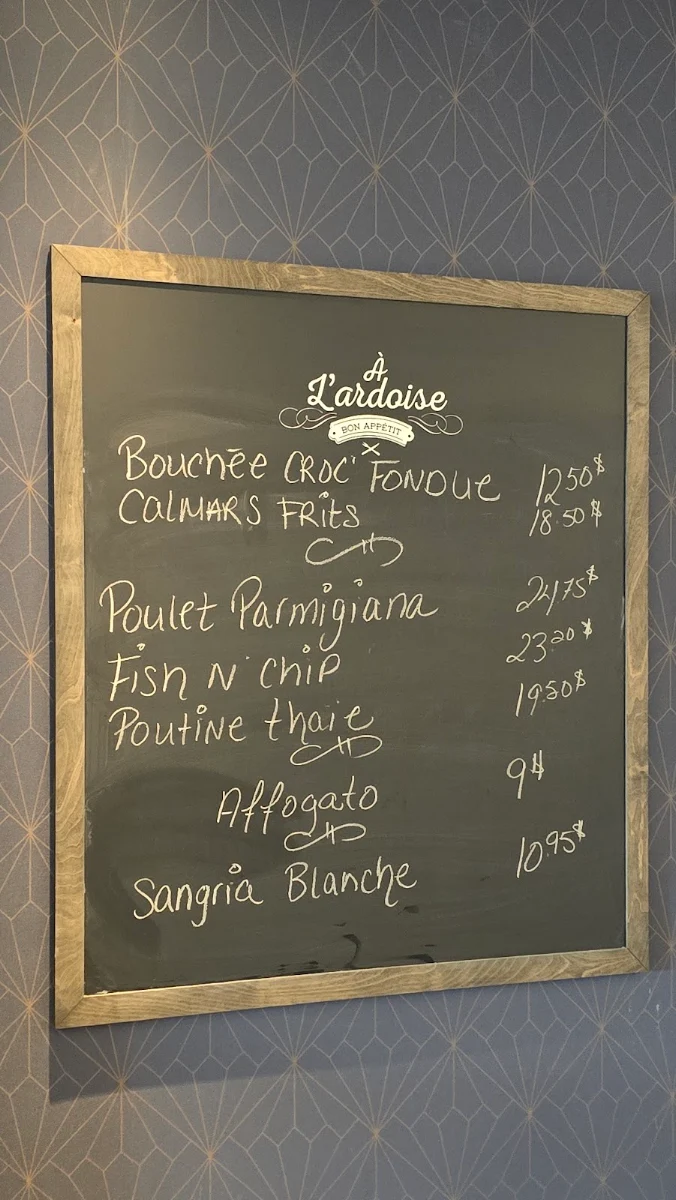 À
L'ardoise
BON APPÉTIT
Bouchée CROC' FONDUE 12.50$
CalMARS FRits 18.50$
Poulet Parmigiana 24.75$
Fish N' Chip 23.20$
Poutine thaïe 19.50$
Affogato 9$
Sangria Blanche 10.95$